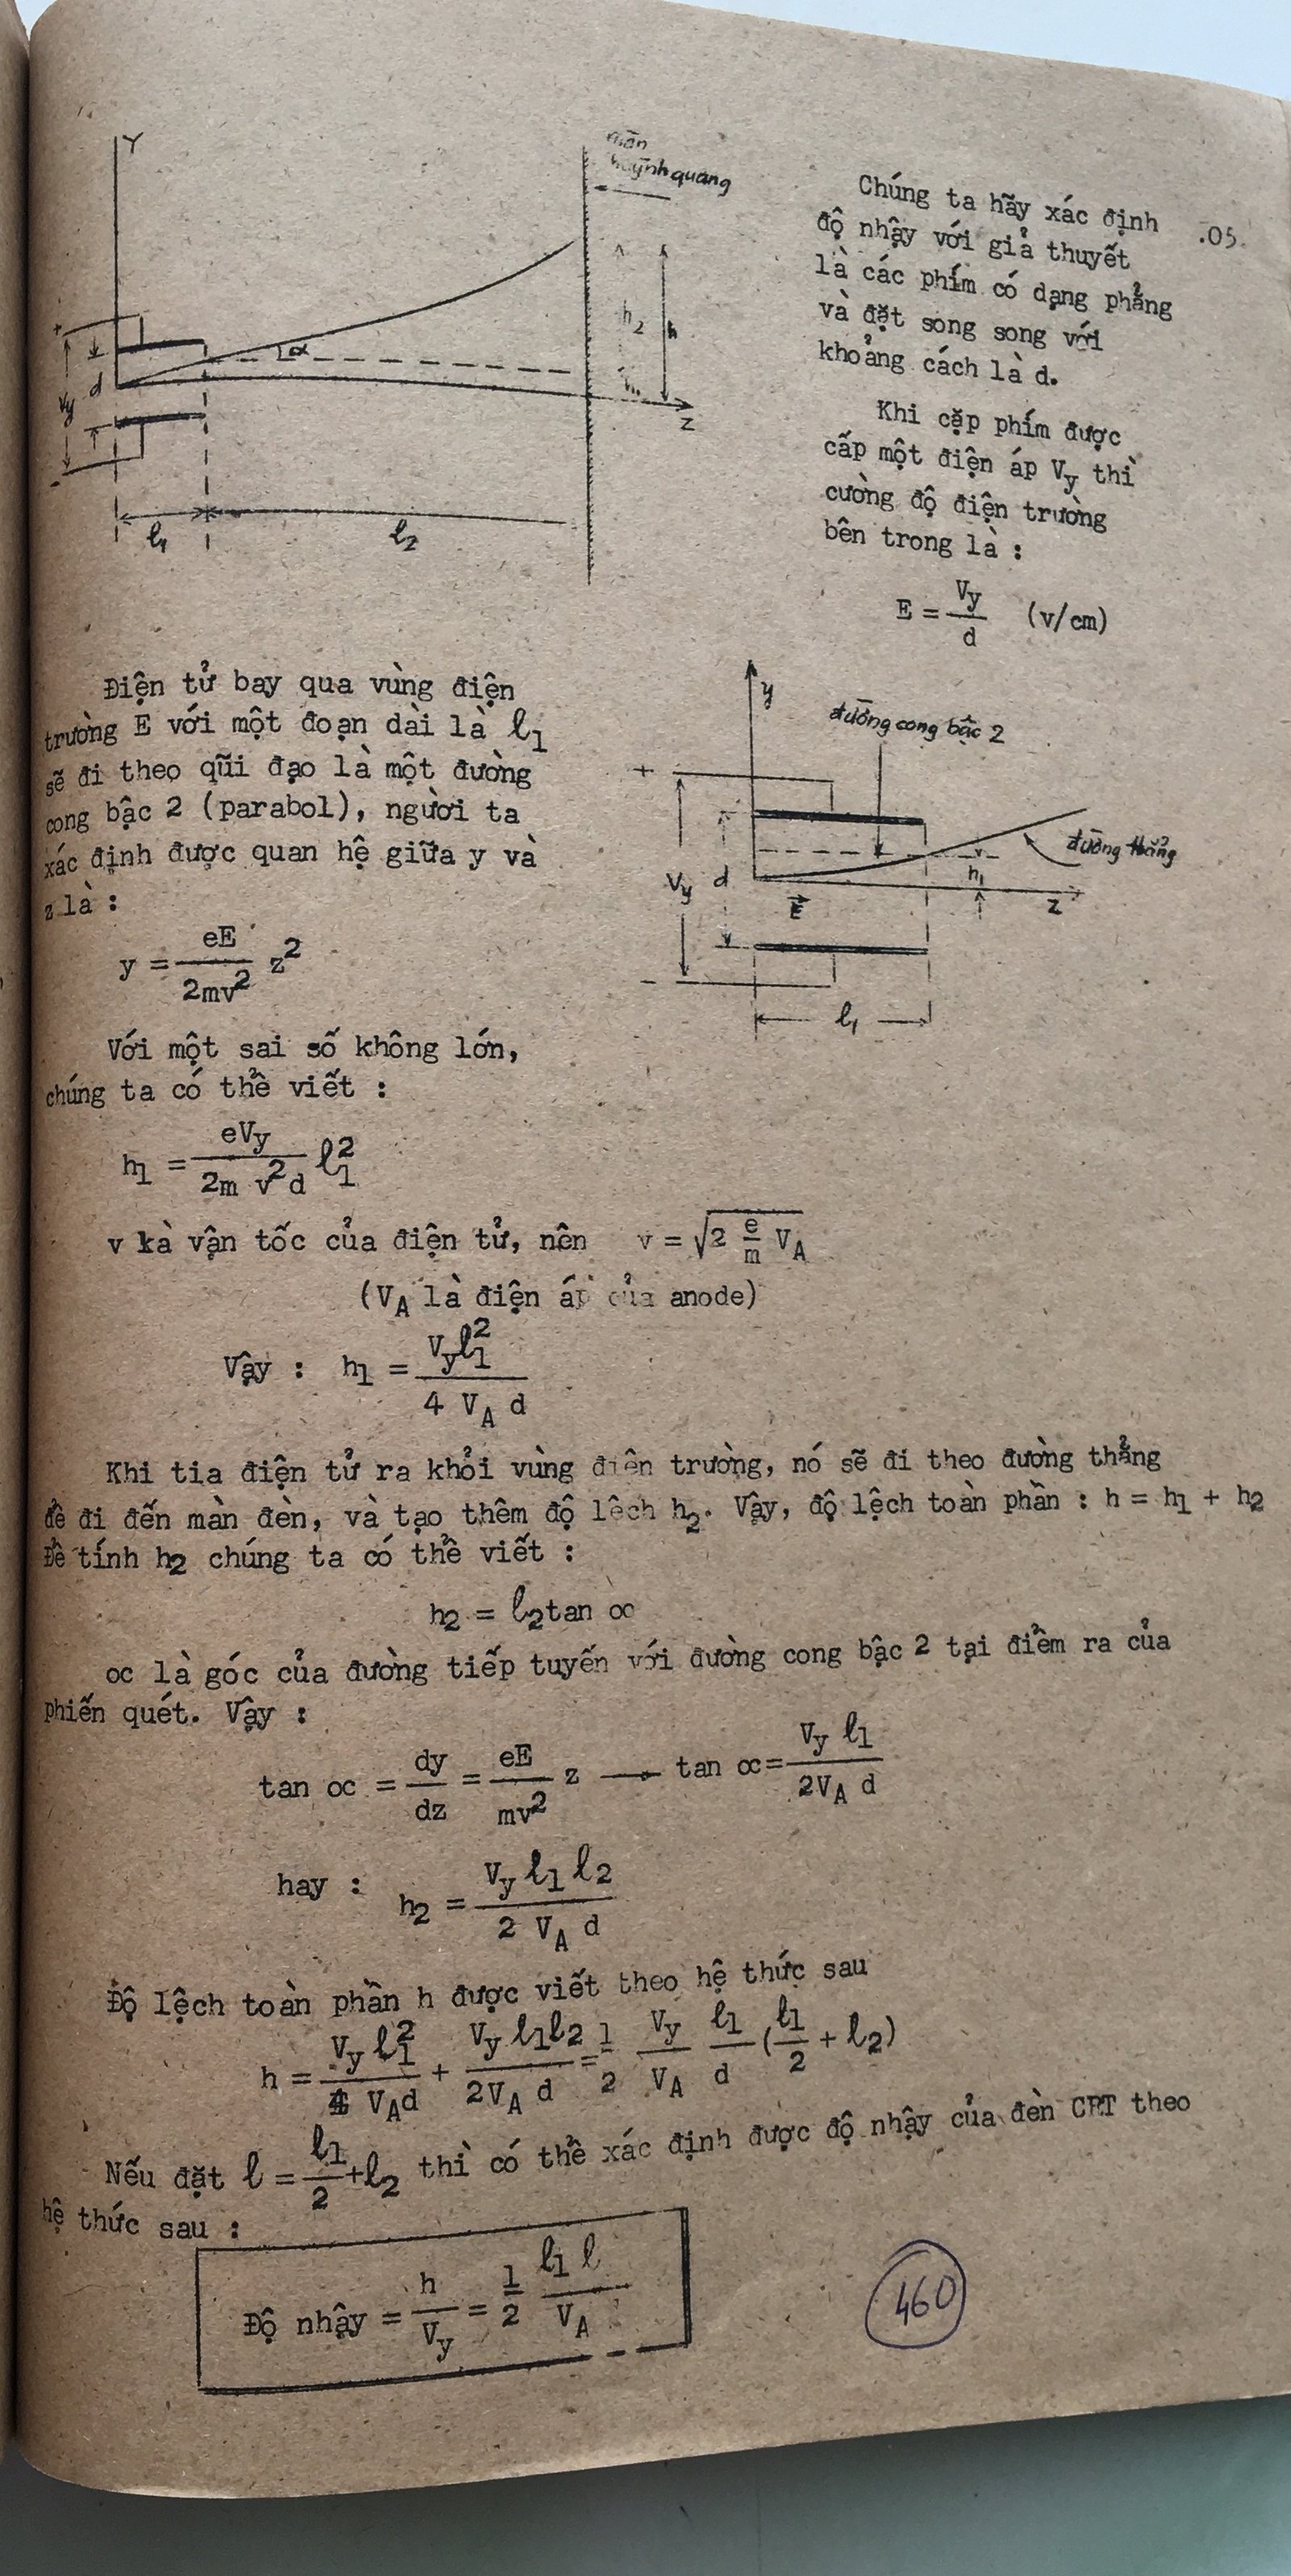 Y
màn
huỳnh quang
+
d
Vy
-
α
h2
h
h1
Z
l1
l2
.05
Chúng ta hãy xác định
độ nhậy với giả thuyết
là các phím có dạng phẳng
và đặt song song với
khoảng cách là d.
Khi cặp phím được
cấp một điện áp Vy thì
cường độ điện trường
bên trong là :
E = Vy/d (v/cm)
Điện tử bay qua vùng điện
trường E với một đoạn dài là l1
sẽ đi theo qũi đạo là một đường
cong bậc 2 (parabol), người ta
xác định được quan hệ giữa y và
z là :
y = eE/2mv² z²
y
đường cong bậc 2
+
đường thẳng
Vy
d
h1
E
Z
-
l1
Với một sai số không lớn,
chúng ta có thể viết :
h1 = eVy/2m v²d l1²
v kà vận tốc của điện tử, nên v = √2 e/m VA
(VA là điện áp của anode)
Vậy : h1 = Vyl1²/4 VA d
Khi tia điện tử ra khỏi vùng điện trường, nó sẽ đi theo đường thẳng
để đi đến màn đèn, và tạo thêm độ lệch h2. Vậy, độ lệch toàn phần : h = h1 + h2
Để tính h2 chúng ta có thể viết :
h2 = l2tan α
α là góc của đường tiếp tuyến với đường cong bậc 2 tại điểm ra của
phiến quét. Vậy :
tan α = dy/dz = eE/mv² z → tan α = Vy l1/2VA d
hay : h2 = Vy l1 l2/2 VA d
Độ lệch toàn phần h được viết theo hệ thức sau
h = Vy l1²/4 VAd + Vy l1l2/2VA d = 1/2 Vy/VA l1/d (l1/2 + l2)
Nếu đặt l = l1/2+l2 thì có thể xác định được độ nhậy của đèn CRT theo
hệ thức sau :
Độ nhậy = h/Vy = 1/2 l1 l/VA
460